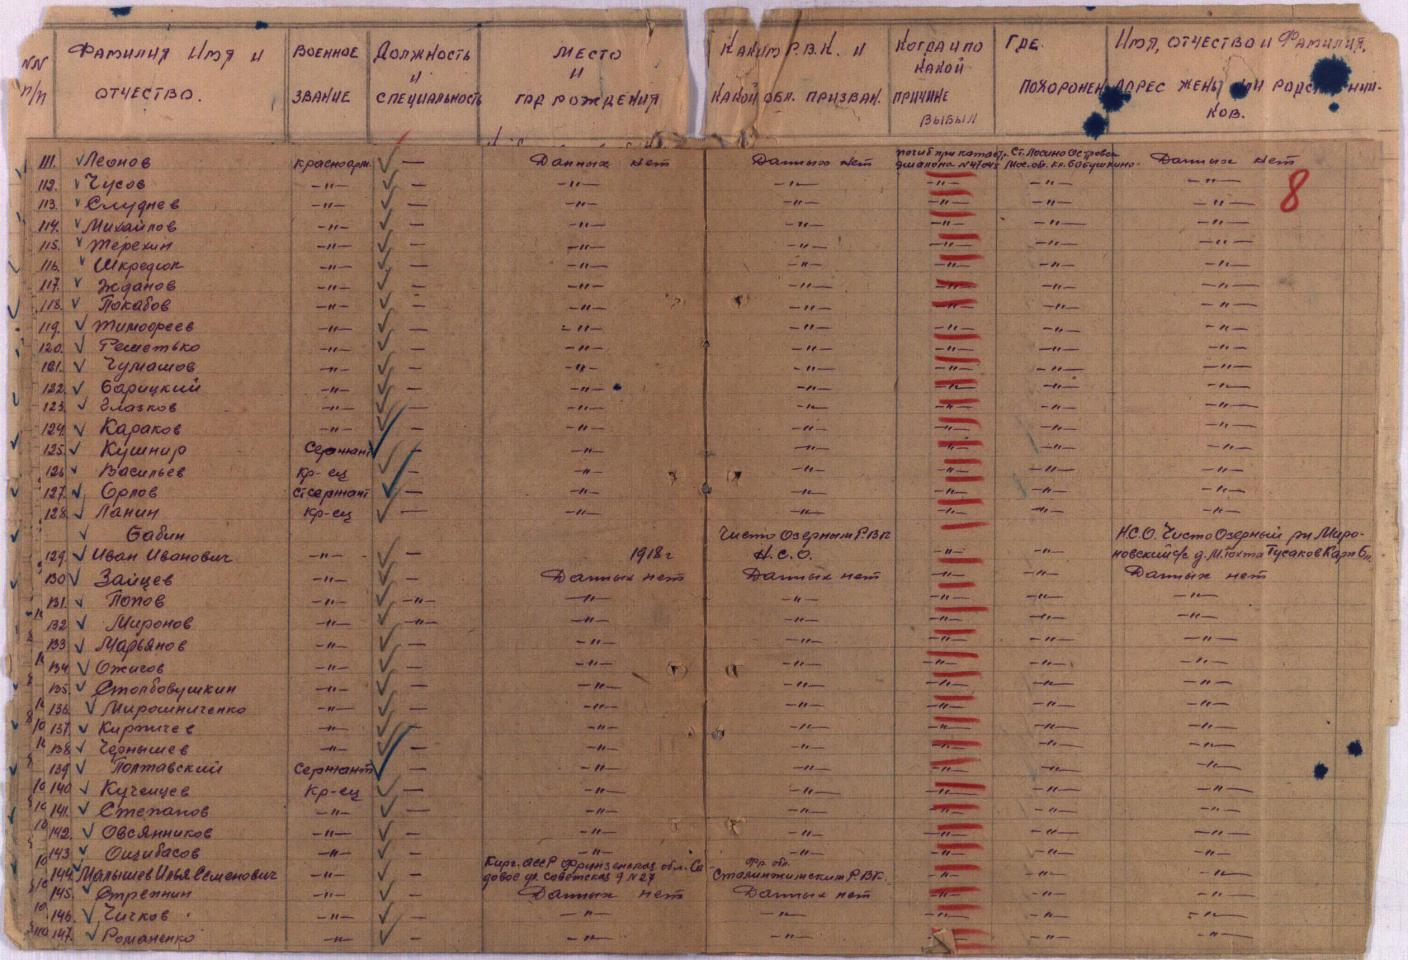 NN п/п ФАМИЛИЯ ИМЯ И ОТЧЕСТВО. ВОЕННОЕ ЗВАНИЕ ДОЛЖНОСТЬ И СПЕЦИАЛЬНОСТЬ МЕСТО И ГОД РОЖДЕНИЯ КАКИМ Р.В.К. И КАКОЙ ОБЛ. ПРИЗВАН. КОГДА И ПО КАКОЙ ПРИЧИНЕ ВЫБЫЛ ГДЕ ПОХОРОНЕН ИМЯ, ОТЧЕСТВО И ФАМИЛИЯ, АДРЕС ЖЕНЫ ИЛИ РОДСТВЕННИКОВ.
8
111. Леонов Красноарм. — Данных нет Данных нет погиб при катастр. Ст. Лосино Островск Данных нет
112. Чусов —"— — —"— —"— —"— —"— —"—
113. Слуднев —"— — —"— —"— —"— —"— —"—
114. Михайлов —"— — —"— —"— —"— —"— —"—
115. Терехин —"— — —"— —"— —"— —"— —"—
116. Шкредюк —"— — —"— —"— —"— —"— —"—
117. Жданов —"— — —"— —"— —"— —"— —"—
118. Покабов —"— — —"— —"— —"— —"— —"—
119. Тимофеев —"— — —"— —"— —"— —"— —"—
120. Решетько —"— — —"— —"— —"— —"— —"—
121. Чумашов —"— — —"— —"— —"— —"— —"—
122. Барицкий —"— — —"— —"— —"— —"— —"—
123. Глазков —"— — —"— —"— —"— —"— —"—
124. Караков —"— — —"— —"— —"— —"— —"—
125. Кушнир Сержант — —"— —"— —"— —"— —"—
126. Васильев Кр-ец — —"— —"— —"— —"— —"—
127. Орлов Ст сержант — —"— —"— —"— —"— —"—
128. Панин Кр-ец — —"— —"— —"— —"— —"—
Бабин Чисто Озерным Р.В.К Н.С.О. Чисто Озерный рн Миро-
129. Иван Иванович —"— 1918 г Н.С.О. —"— —"— новский с/с
130 Зайцев —"— — Данных нет Данных нет —"— —"— Данных нет
131. Попов —"— —"— —"— —"— —"— —"— —"—
132 Миронов —"— —"— —"— —"— —"— —"— —"—
133 Марьянов —"— — —"— —"— —"— —"— —"—
134 Ожигов —"— — —"— —"— —"— —"— —"—
135. Столбовушкин —"— — —"— —"— —"— —"— —"—
136. Мирошниченко —"— — —"— —"— —"— —"— —"—
137. Кирпичев —"— — —"— —"— —"— —"— —"—
138. Чернышев —"— — —"— —"— —"— —"— —"—
139 Полтавский Сержант — —"— —"— —"— —"— —"—
140. Кученцев Кр-ец — —"— —"— —"— —"— —"—
141. Степанов —"— — —"— —"— —"— —"— —"—
142. Овсянников —"— — —"— —"— —"— —"— —"—
143 Ощибасов —"— — —"— —"— —"— —"— —"—
Кирг. АССР Фрунзенская обл. Фр. обл.
144. Малышев Илья Семенович —"— — ул. Советская д N 27 Сталинским Р.В.К. —"— —"— —"—
145. —"— — Данных нет Данных нет —"— —"— —"—
146. Чичков —"— — —"— —"— —"— —"— —"—
147. Романенко —"— — —"— —"— —"— —"— —"—